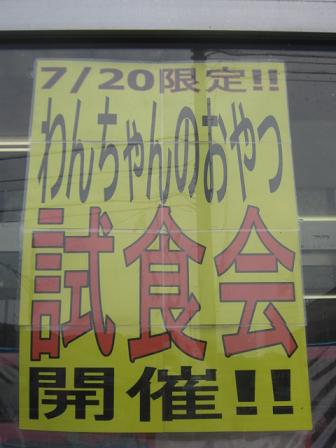 7/20限定!!
わんちゃんのおやつ
試食会
開催!!